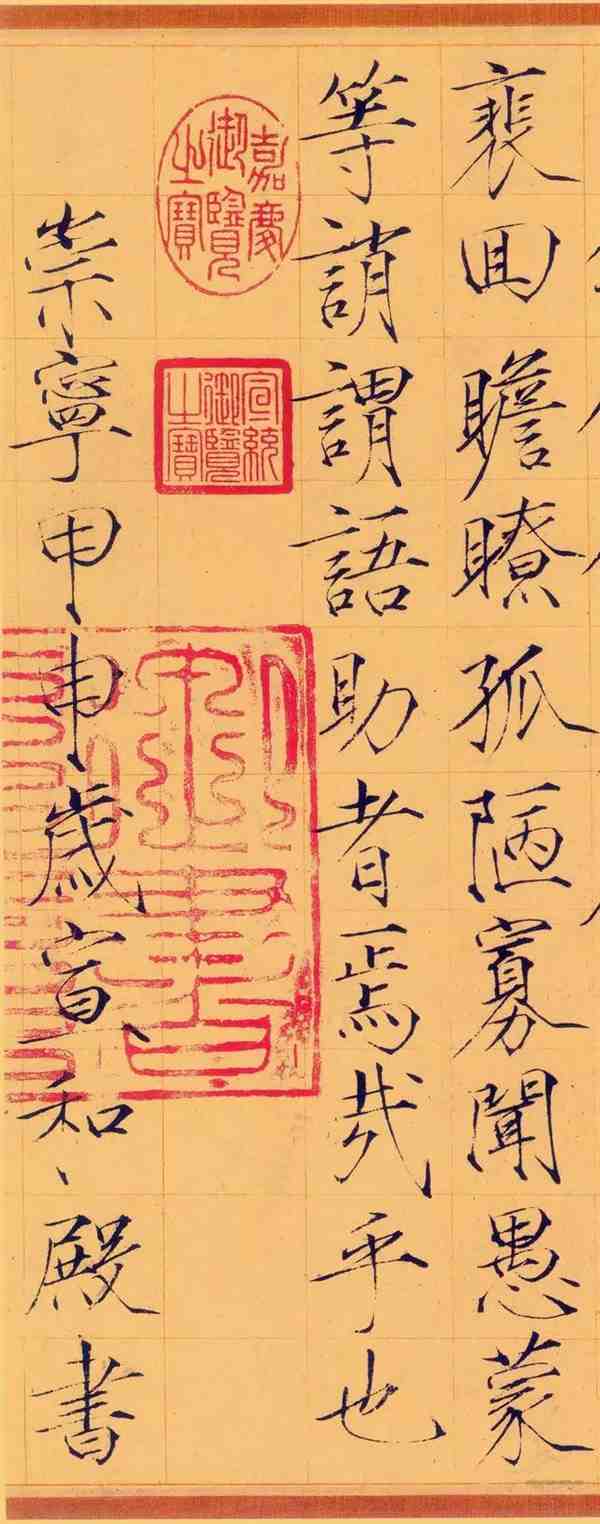 裵囬瞻瞭孤陋寡聞愚蒙
等誚謂語助者焉哉乎也
嘉慶
御覽
之寶
宣統
御覽
之寶
崇寧甲申歲宣和殿書